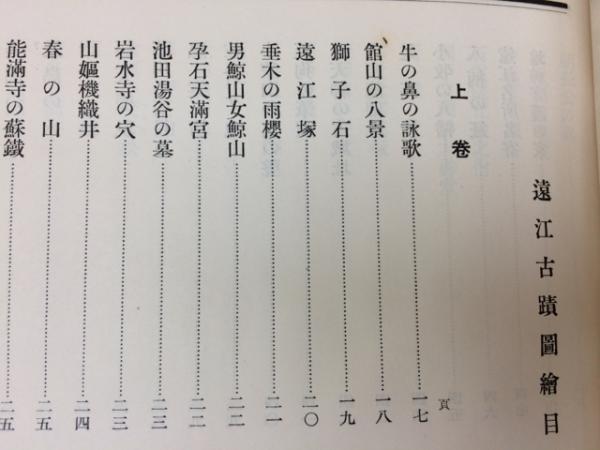 遠江古蹟圖繪目
上卷
頁
牛の鼻の詠歌…一七
館山の八景…一八
獅子石…一九
遠江塚…二〇
垂木の雨櫻…二一
男鯨山女鯨山…二二
孕石天滿宮…二二
池田湯谷の墓…二三
岩水寺の穴…二三
山嫗機織井…二四
春の山…二五
能滿寺の蘇鐵…二五